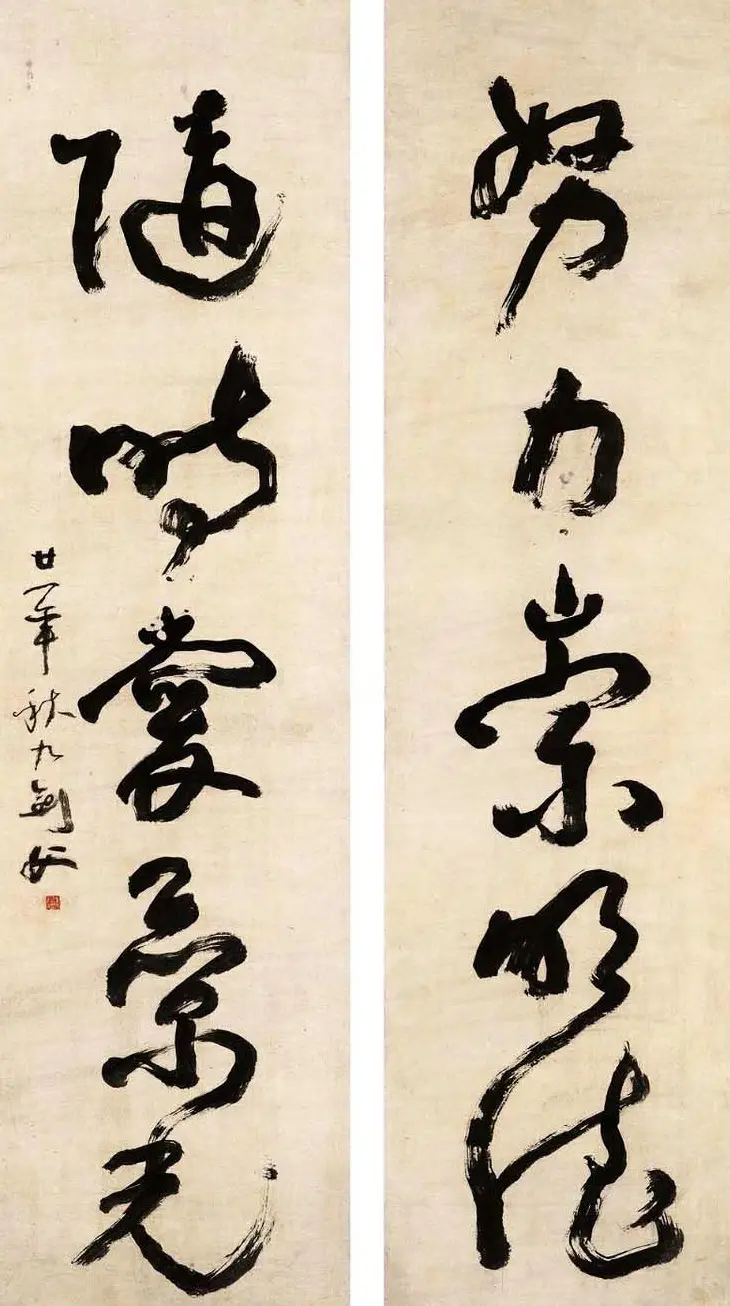 努力崇明德
隨時愛景光
廿一年秋九劍父